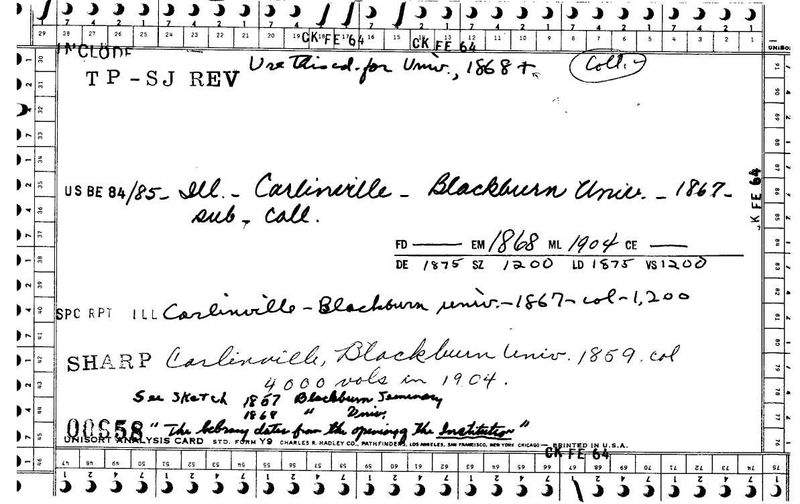 CK FE 64 CK FE 64
INCLUDE
TP-SJ REV Use this cd. for Univ., 1868+. Coll.
US BE 84/85- Ill. - Carlinville - Blackburn Univ. - 1867-
sub. coll.
CK FE 64
FD —— EM 1868 ML 1904 CE ——
DE 1875 SZ 1200 LD 1875 VS 1200
SPC RPT ILL Carlinville - Blackburn univ. - 1867 - col - 1,200
SHARP Carlinville, Blackburn Univ. 1859. col
4000 vols in 1904.
See Sketch 1857 Blackburn Seminary
1868 " Univ.
00658 "The library dates from the opening of the Institution"
UNISORT ANALYSIS CARD STD. FORM Y9 CHARLES R. HADLEY CO., PATHFINDERS, LOS ANGELES, SAN FRANCISCO, NEW YORK CHICAGO — PRINTED IN U.S.A.
CK FE 64